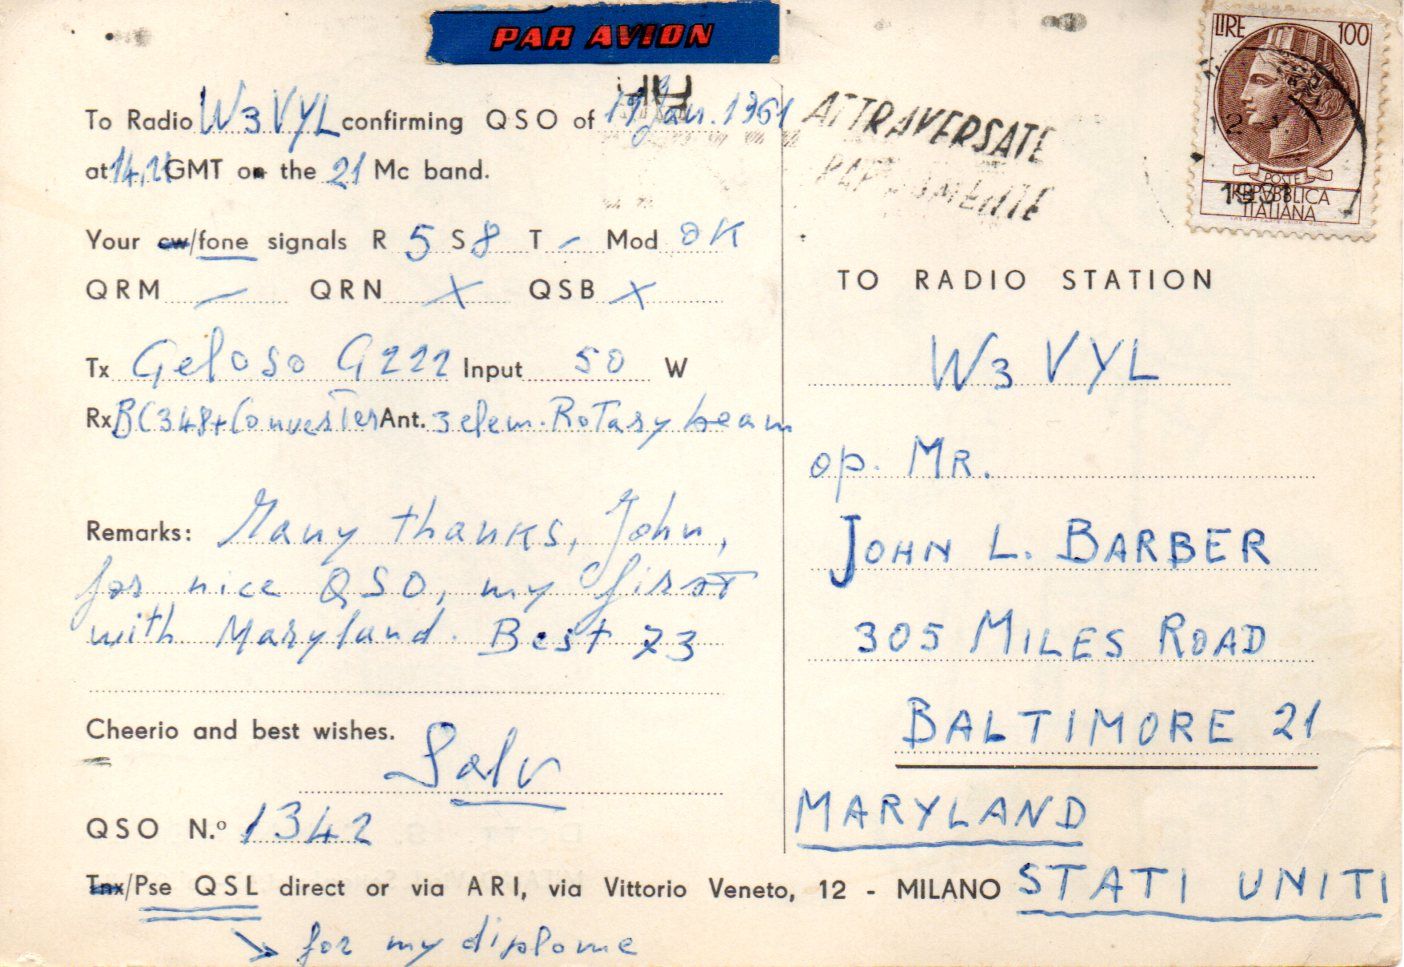 PAR AVION
LIRE 100
To Radio W3VYL confirming QSO of 19 Jan. 1961
ATTRAVERSATE
at GMT on the 21 Mc band.
POSTE
REPVBBLICA
ITALIANA
Your cw/fone signals R 5 S 8 T - Mod OK
QRM — QRN X QSB X
TO RADIO STATION
Tx Geloso G222 Input 50 W
W3VYL
Rx BC348+Converter Ant. 3 elem. Rotary beam
op. MR.
Remarks: Many thanks, John,
JOHN L. BARBER
for nice QSO, my first
with Maryland. Best 73
305 MILES ROAD
Cheerio and best wishes.
BALTIMORE 21
Salv
QSO N.º 1342
MARYLAND
Tnx/Pse QSL direct or via ARI, via Vittorio Veneto, 12 - MILANO
STATI UNITI
for my diplome